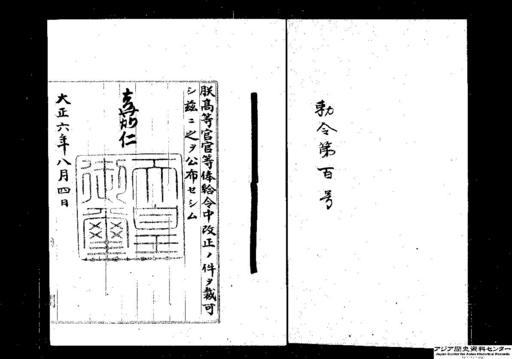 勅令第百号
朕高等官官等俸給令中改正ノ件ヲ裁可
シ茲ニ之ヲ公布セシム
嘉仁
天皇
御璽
大正六年八月四日
アジア歴史資料センター
Japan Center for Asian Historical Records